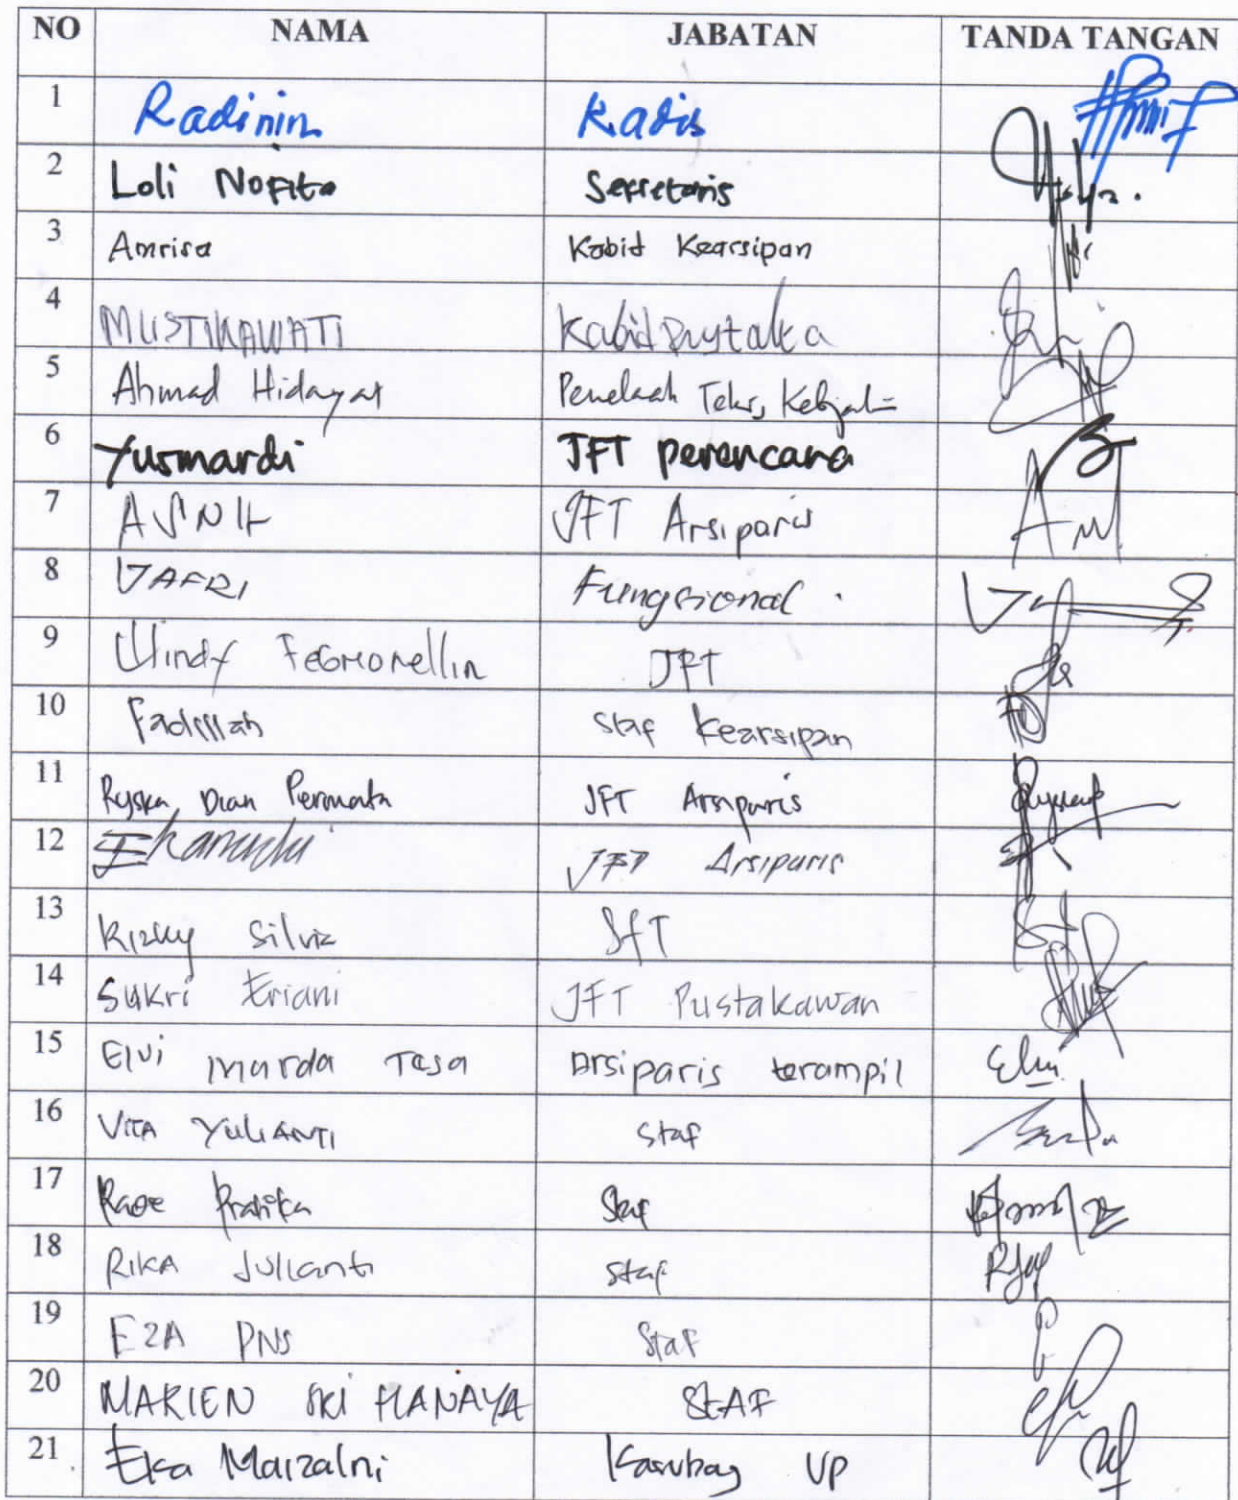 NO NAMA JABATAN TANDA TANGAN
1 Radinin Kadis
2 Loli Nofita Sekretaris
3 Amrisa Kabid Kearsipan
4 MUSTIKAWATI Kabid Pustaka
5 Ahmad Hidayat Penelaah Teknis
6 Yusmardi JFT perencana
7 ASNI JFT Arsiparis
8 JAFRI Fungsional
9 Windy JFT
10 Fadillah Staf Kearsipan
11 Ryska Dian Permata JFT Arsiparis
12 JFT Arsiparis
13 Rizky Silvia JFT
14 Sukri Eriani JFT Pustakawan
15 Elvi marda Tasa Arsiparis terampil
16 VITA YULIANTI Staf
17 Staf
18 RIKA Julianti Staf
19 EZA PNS Staf
20 MARIEN SRI HANAYA STAF
21 Eka Maizalni Kasubag UP